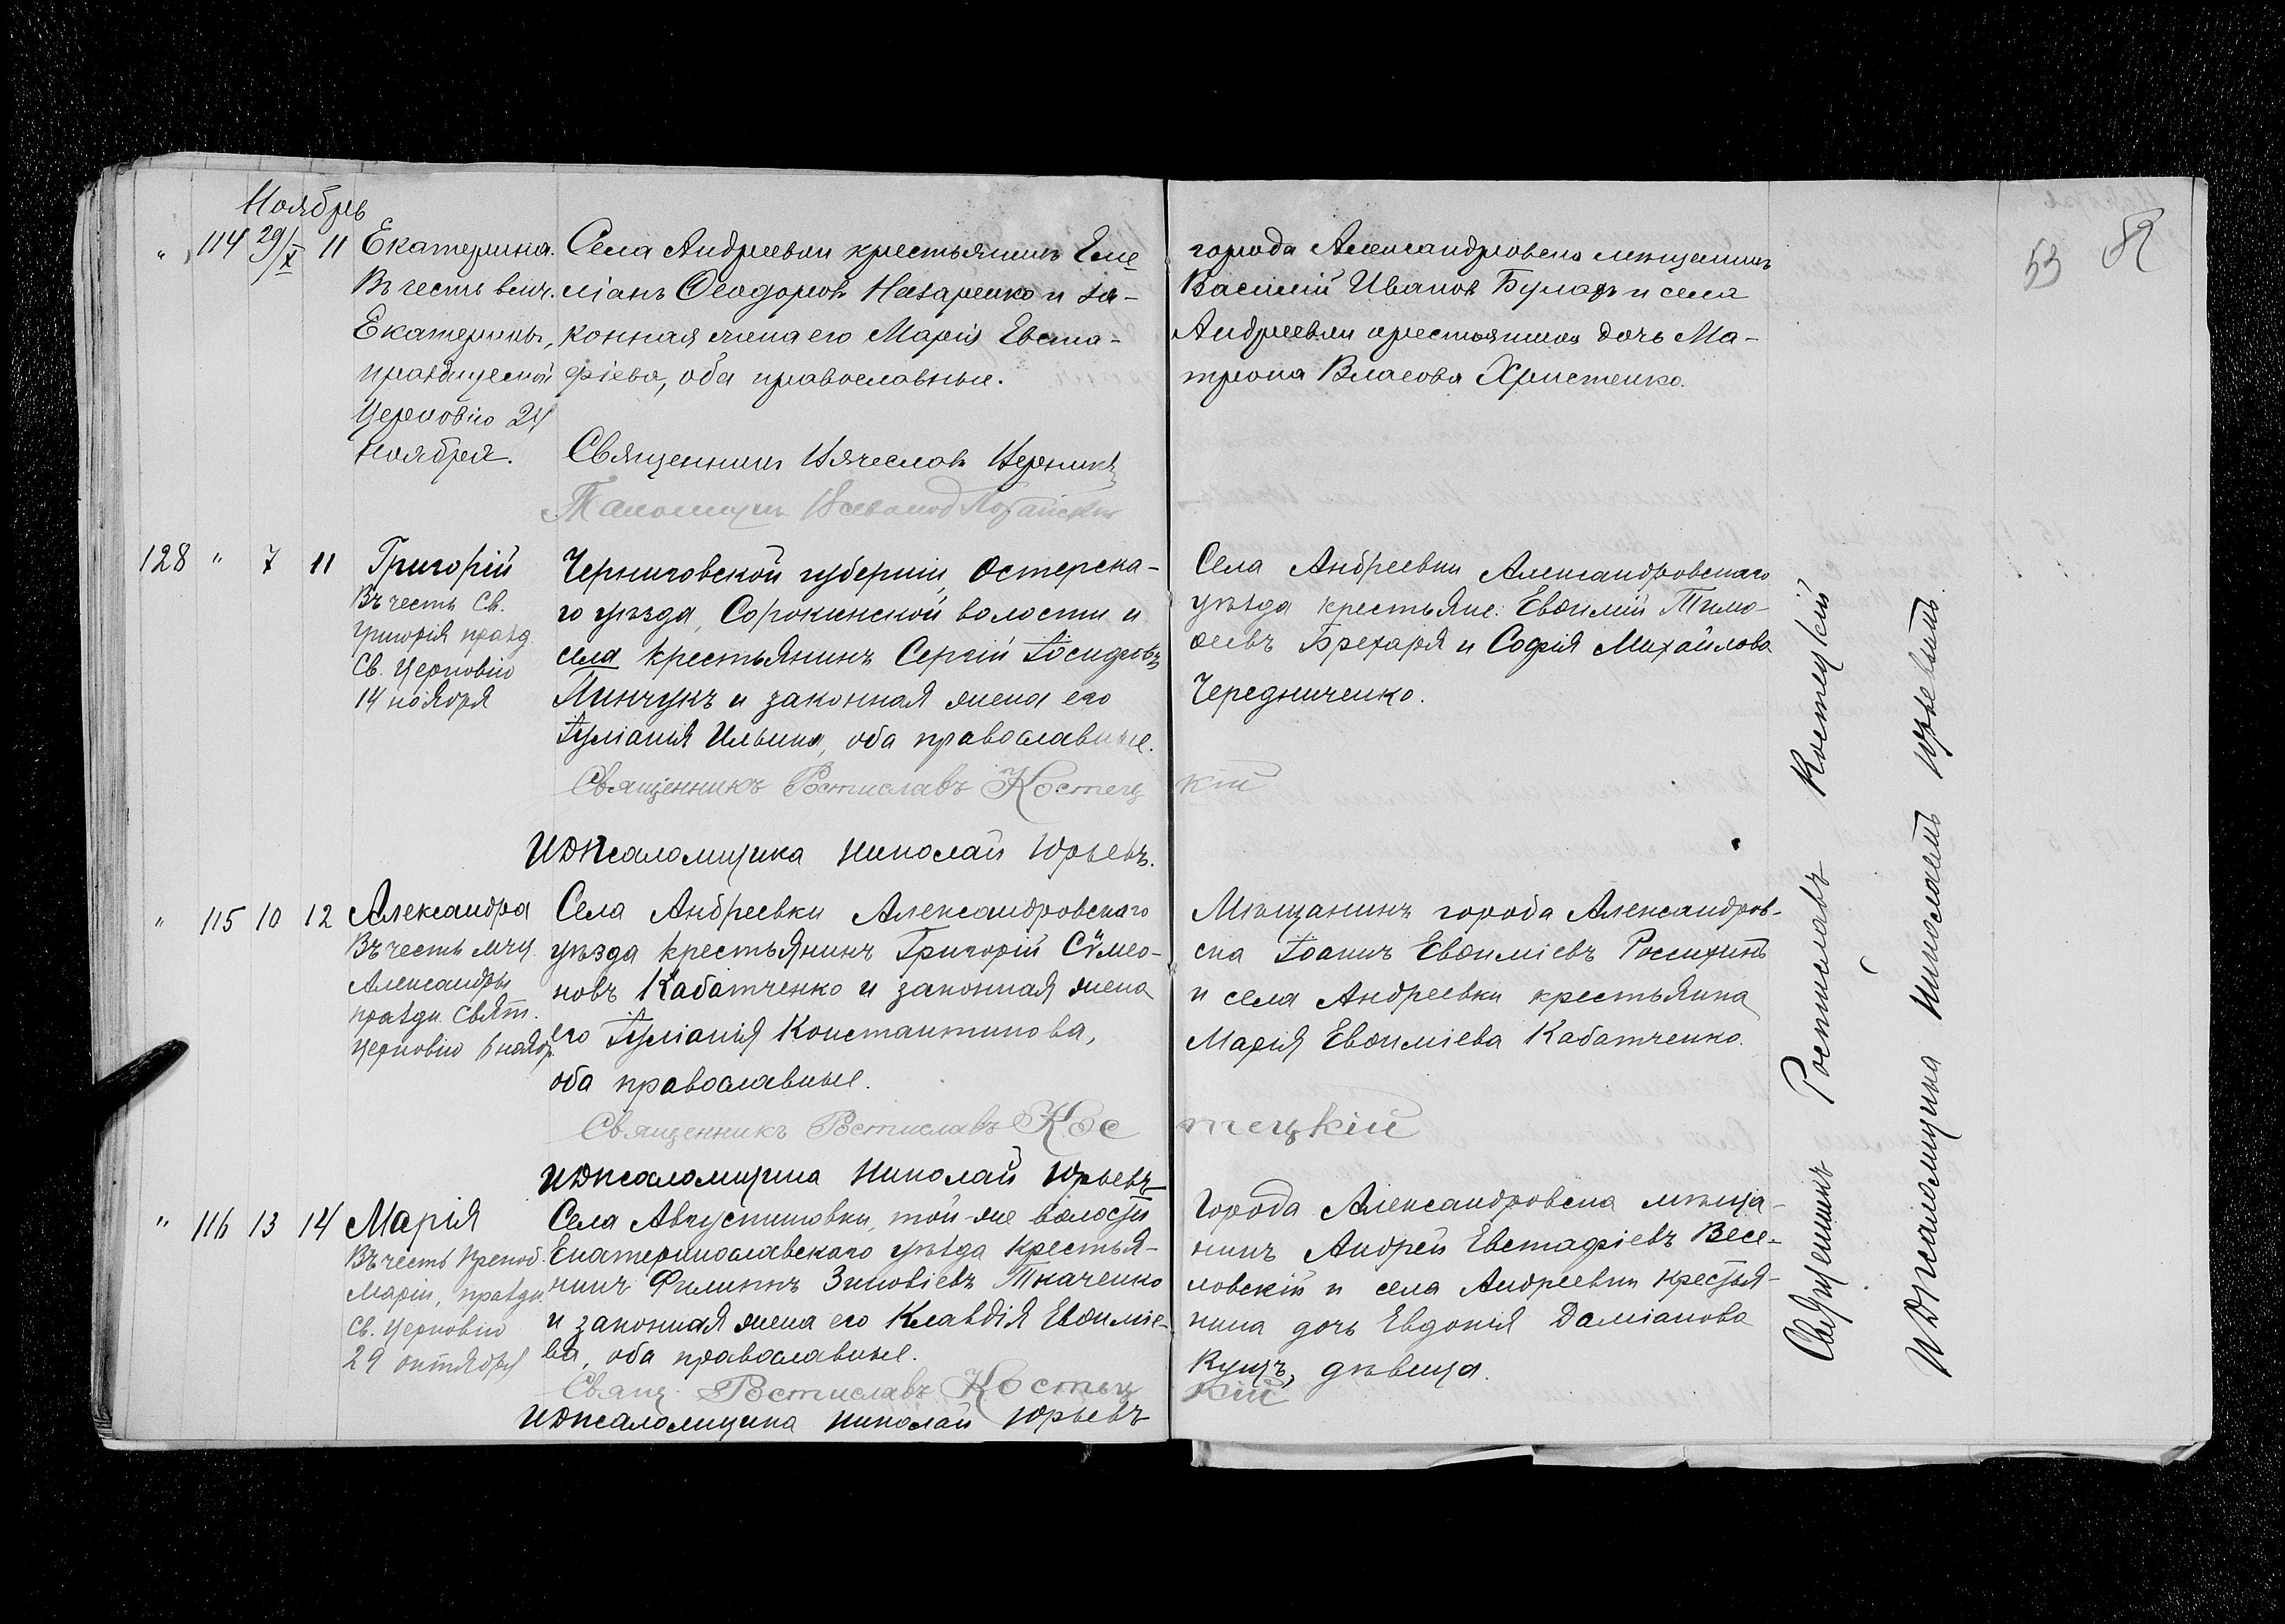 Ноябрь
" 114 29/X 11 Екатерина.
Въ честь влмч.
Екатерины,
празднуемой
Церковію 24
ноября.
Села Андреевки крестьянинъ Еме-
ліанъ Ѳеодоровъ Назаренко и за-
конная жена его Марія Евста-
фіева, оба православные.
Священникъ Вячеславъ
Псаломщикъ Всеволод
города Александровска мѣщанинъ
Василій Ивановъ Булахъ и села
Андреевки крестьянина дочь Ма-
трона Власова Христенко.
53
128 " 7 11 Григорій
Въ честь Св.
Григорія празд.
Св. Церковію
14 ноября
Черниговской губерніи, Остерска-
го уѣзда, Сорокинской волости и
села крестьянинъ Сергій Іосифовъ
Минчукъ и законная жена его
Іуліанія Ильина, оба православные.
Священникъ Ростиславъ Костецкій
И Д Псаломщика Николай Юрьевъ.
Села Андреевки Александровскаго
уѣзда крестьяне: Евѳимій Тимо-
ѳеевъ Брехаря и Софія Михайлова
Чередниченко.
" 115 10 12 Александра
Въ честь мчц.
Александры
праздн. Свят.
Церковію 6 ноябр.
Села Андреевки Александровскаго
уѣзда крестьянинъ Григорій Сѵмео-
новъ Кабатченко и законная жена
его Іуліанія Константинова,
оба православные.
Священникъ Ростиславъ Костецкій
И Д Псаломщика Николай Юрьевъ
Мѣщанинъ города Александров-
ска Іоаннъ Евѳиміевъ Россихинъ
и села Андреевки крестьянка
Марія Евѳиміева Кабатченко.
" 116 13 14 Марія
Въ честь Препод.
Маріи, праздн.
Св. Церковію
29 октября
Села Августиновки, той-же волости
Екатеринославскаго уѣзда крестья-
нинъ Филиппъ Зиновіевъ Ткаченко
и законная жена его Клавдія Евѳиміе-
ва, оба православные.
Свящ. Ростиславъ Костецкій
И Д Псаломщика Николай Юрьевъ
Города Александровска мѣща-
нинъ Андрей Евстафіевъ Весе-
ловскій и села Андреевки крестья-
нина дочь Евдокія Даміанова
Кущъ, дѣвица.
Священникъ Ростиславъ Костецкій
И Д Псаломщика Николай Юрьевъ